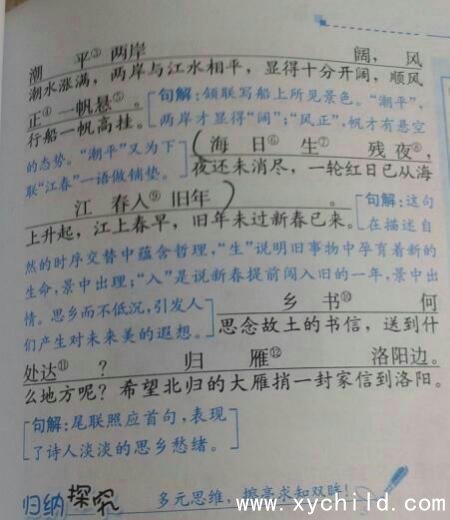 潮 平③ 两岸 阔，风
潮水涨满，两岸与江水相平，显得十分开阔，顺风
正④ 一帆悬⑤。 [句解：颔联写船上所见景色。“潮平”，
行船一帆高挂。 两岸才显得“阔”；“风正”，帆才有悬空
的态势。“潮平”又为下 (海 日⑥ 生⑦ 残夜⑧，
联“江春”一语做铺垫。] 夜还未消尽，一轮红日已从海
江 春入⑨ 旧年) 。 [句解：这句
上升起，江上春早，旧年未过新春已来。 在描述自
然的时序交替中蕴含哲理，“生”说明旧事物中孕育着新的
生命，景中出理；“入”是说新春提前闯入旧的一年，景中出
情。思乡而不低沉，引发人 乡 书⑩ 何
们产生对未来美的遐想。] 思念故土的书信，送到什
处达⑪ ？ 归 雁⑫ 洛阳边。
么地方呢？希望北归的大雁捎一封家信到洛阳。
[句解：尾联照应首句，表现
了诗人淡淡的思乡愁绪。]
归纳探究 多元思维，擦亮求知双眸！
www.xychild.com